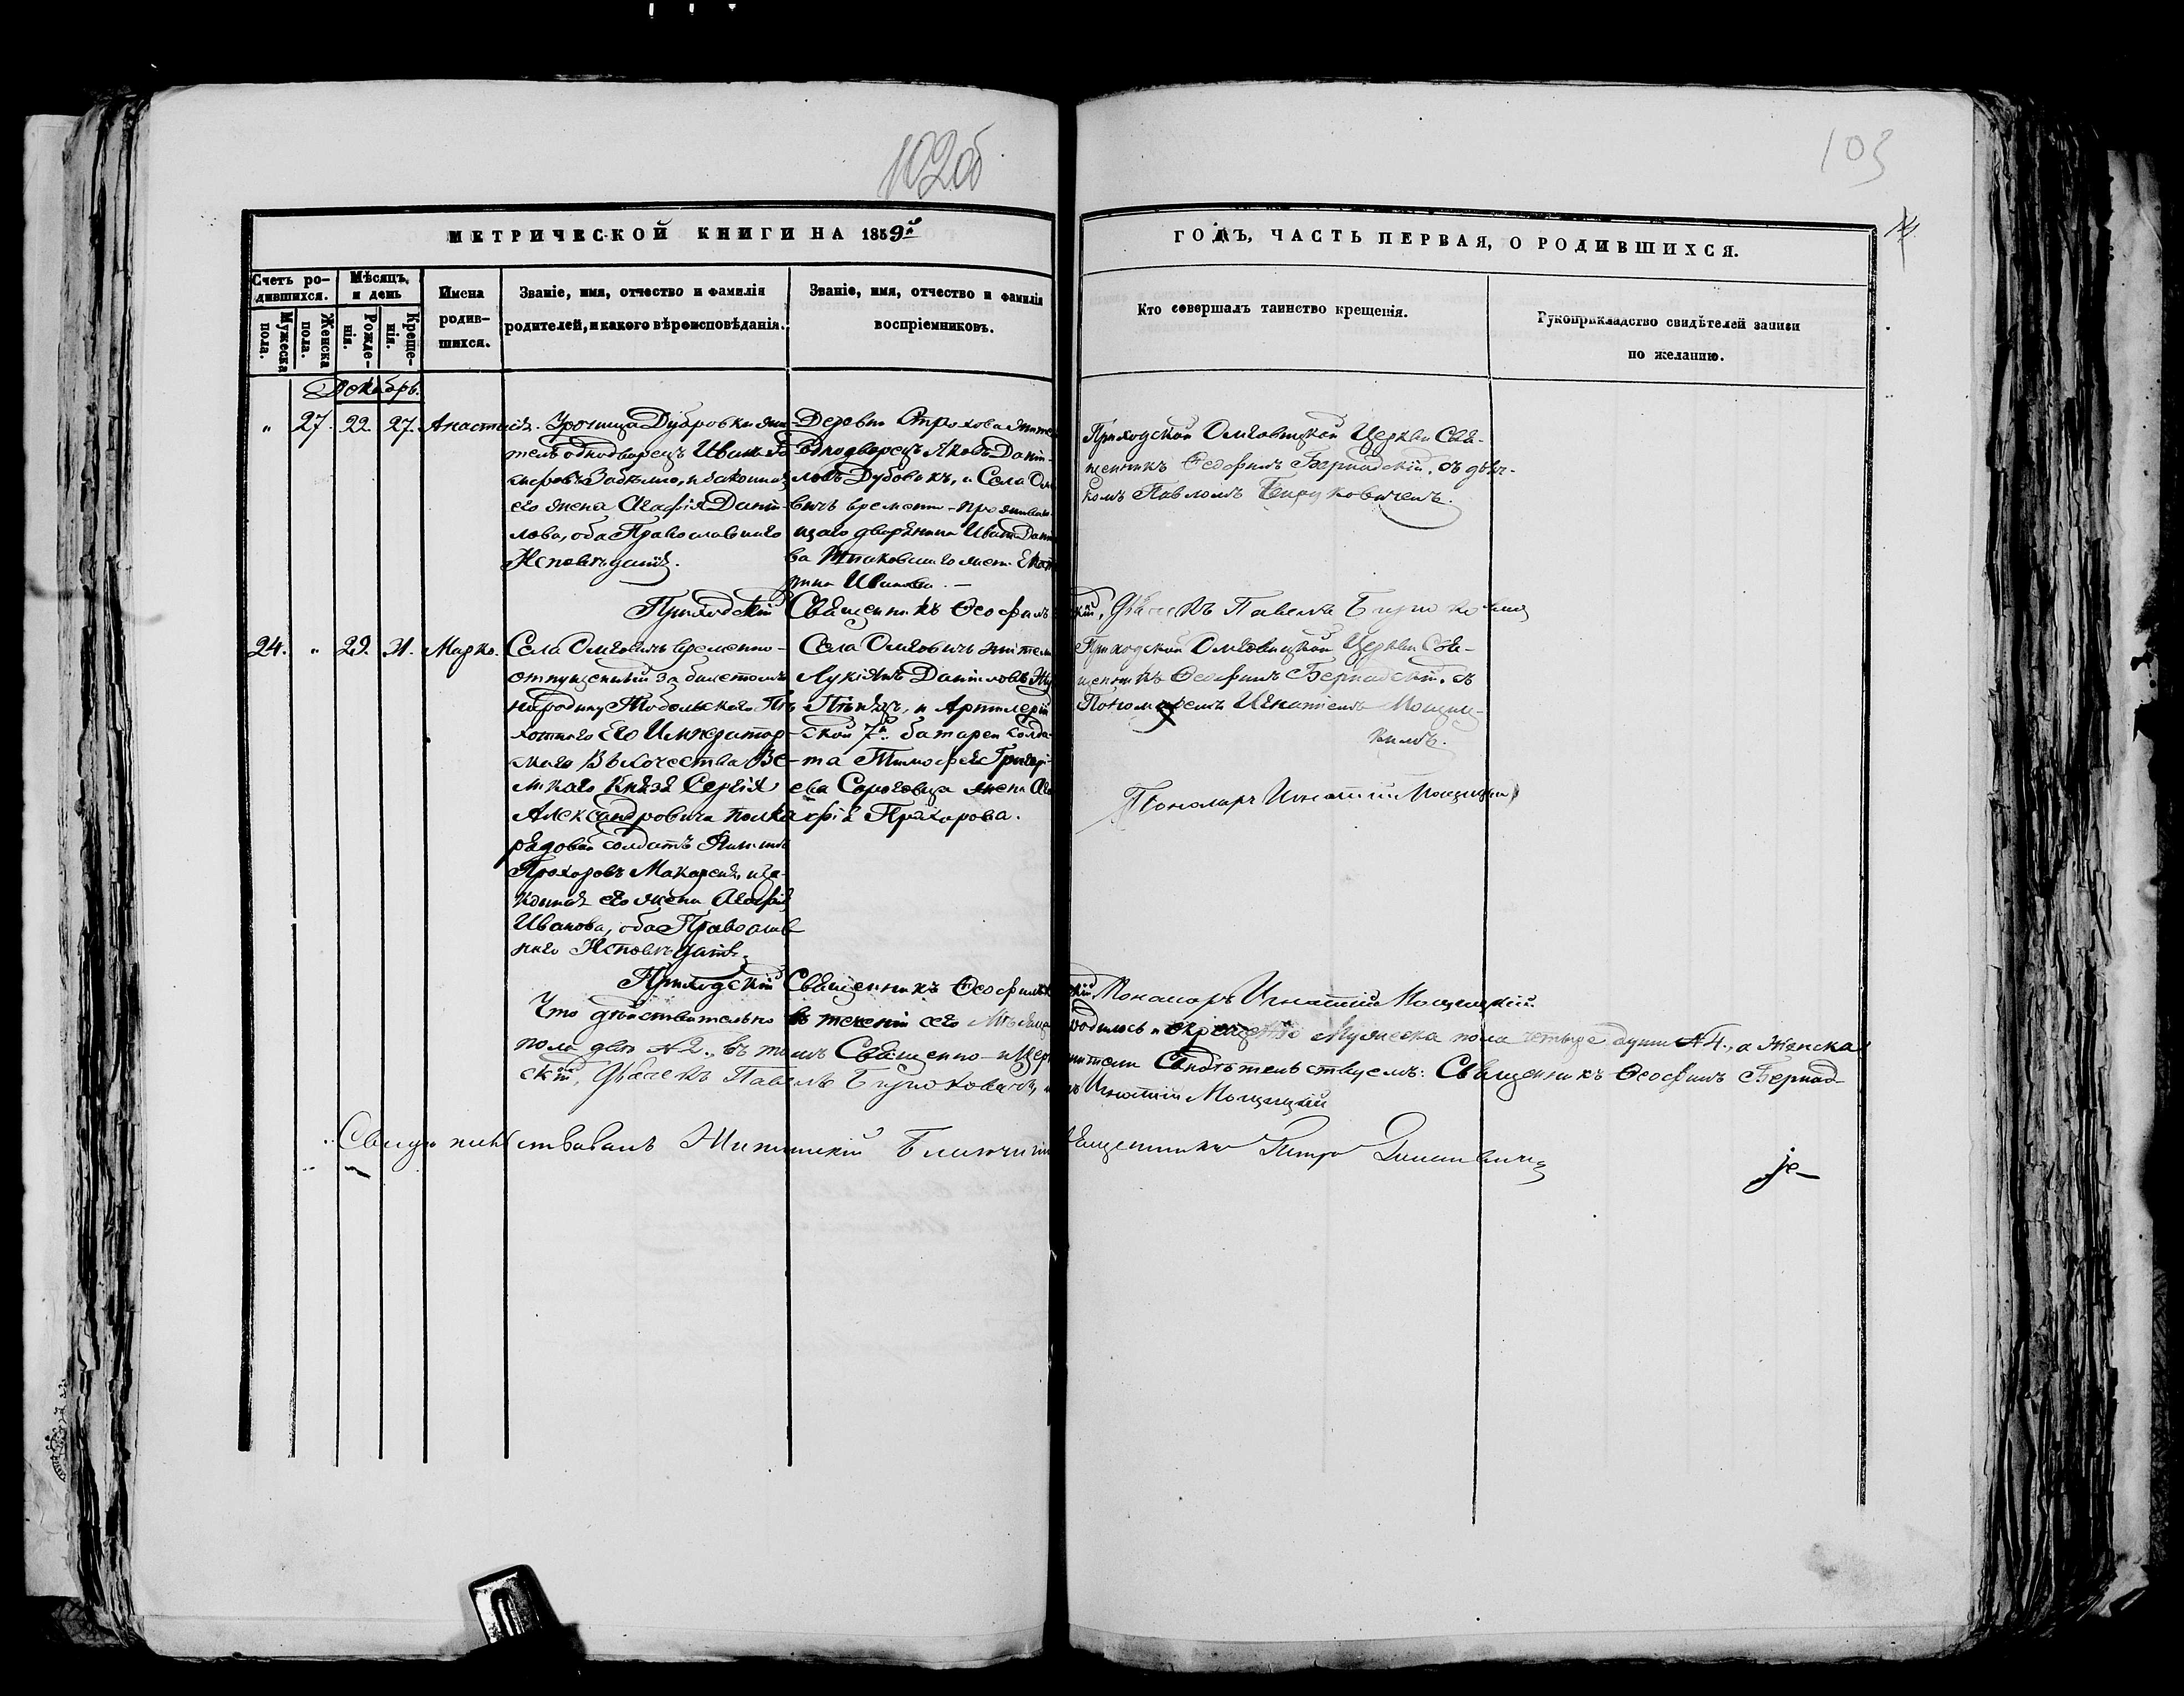 102об
103
МЕТРИЧЕСКОЙ КНИГИ НА 1859й
ГОДЪ, ЧАСТЬ ПЕРВАЯ, О РОДИВШИХСЯ.
Счетъ родившихся.
Мужеска пола.
Женска пола.
Мѣсяцъ и день
Рожденія.
Крещенія.
Имена родившихся.
Званіе, имя, отчество и фамилія
родителей, и какого вѣроисповѣданія.
Званіе, имя, отчество и фамилія
воспріемниковъ.
Кто совершалъ таинство крещенія.
Рукоприкладство свидѣтелей записи
по желанію.
Декабрь.
" 27. 22. 27. Анастасія.
Урочища Дубровки жи-
тель однодворецъ Иванъ
и законная
его жена Агафія Дани-
лова, оба Православнаго
Исповѣданія.
Деревни жител
однодворецъ Яковъ Дани-
ловъ Дубовикъ, и Села Ом
вичъ временно-прожива-
щаго дворянина Ивана Дани
ва жена Екат
рина Иванова. —
Приходской Омговицкой Церкви Свя-
щенникъ Ѳеофилъ Бернадскій, съ дьяч-
комъ Павломъ Бируковичемъ.
Приходскій Священникъ Ѳеофилъ
кій, Дьячекъ Павелъ Бируковичъ
24. " 29. 31. Марко.
Села Омговичъ временно-
отпущенный за билетомъ
на родину Тобольскаго Пѣ-
хотнаго Его Император-
скаго Высочества Ве-
ликаго Князя Сергія
Александровича полка
рядовой солдатъ
Прохоровъ Макареня, и за-
конная его жена Агафія
Иванова, оба Православ
наго Исповѣданія.
Села Омговичъ житель
Лукіянъ Даниловъ
и Артилерій
ской 7й батареи солда-
та Тимофея Григорі-
ева жена Ага
фія Прохорова.
Приходской Омговицкой Церкви Свя-
щенникъ Ѳеофилъ Бернадскій, съ
Пономаремъ Игнатіемъ Мощиц-
кимъ.
Пономарь Игнатій Мощицкій
Приходскій Священникъ Ѳеофилъ
кій Пономарь Игнатій Мощицкій
Что дѣйствительно въ теченіи сего Мѣсяца
родилось и окрещено Мужеска пола четыре души № 4., а Женска
пола двѣ № 2., въ томъ Священно-и Цер
жители Свидѣтельствуемъ: Священникъ Ѳеофилъ Бернад-
скій, Дьячекъ Павелъ Бируковичъ,
ь Игнатій Мощицкій
Свидѣтельствовалъ Благочин
ященникъ Петръ